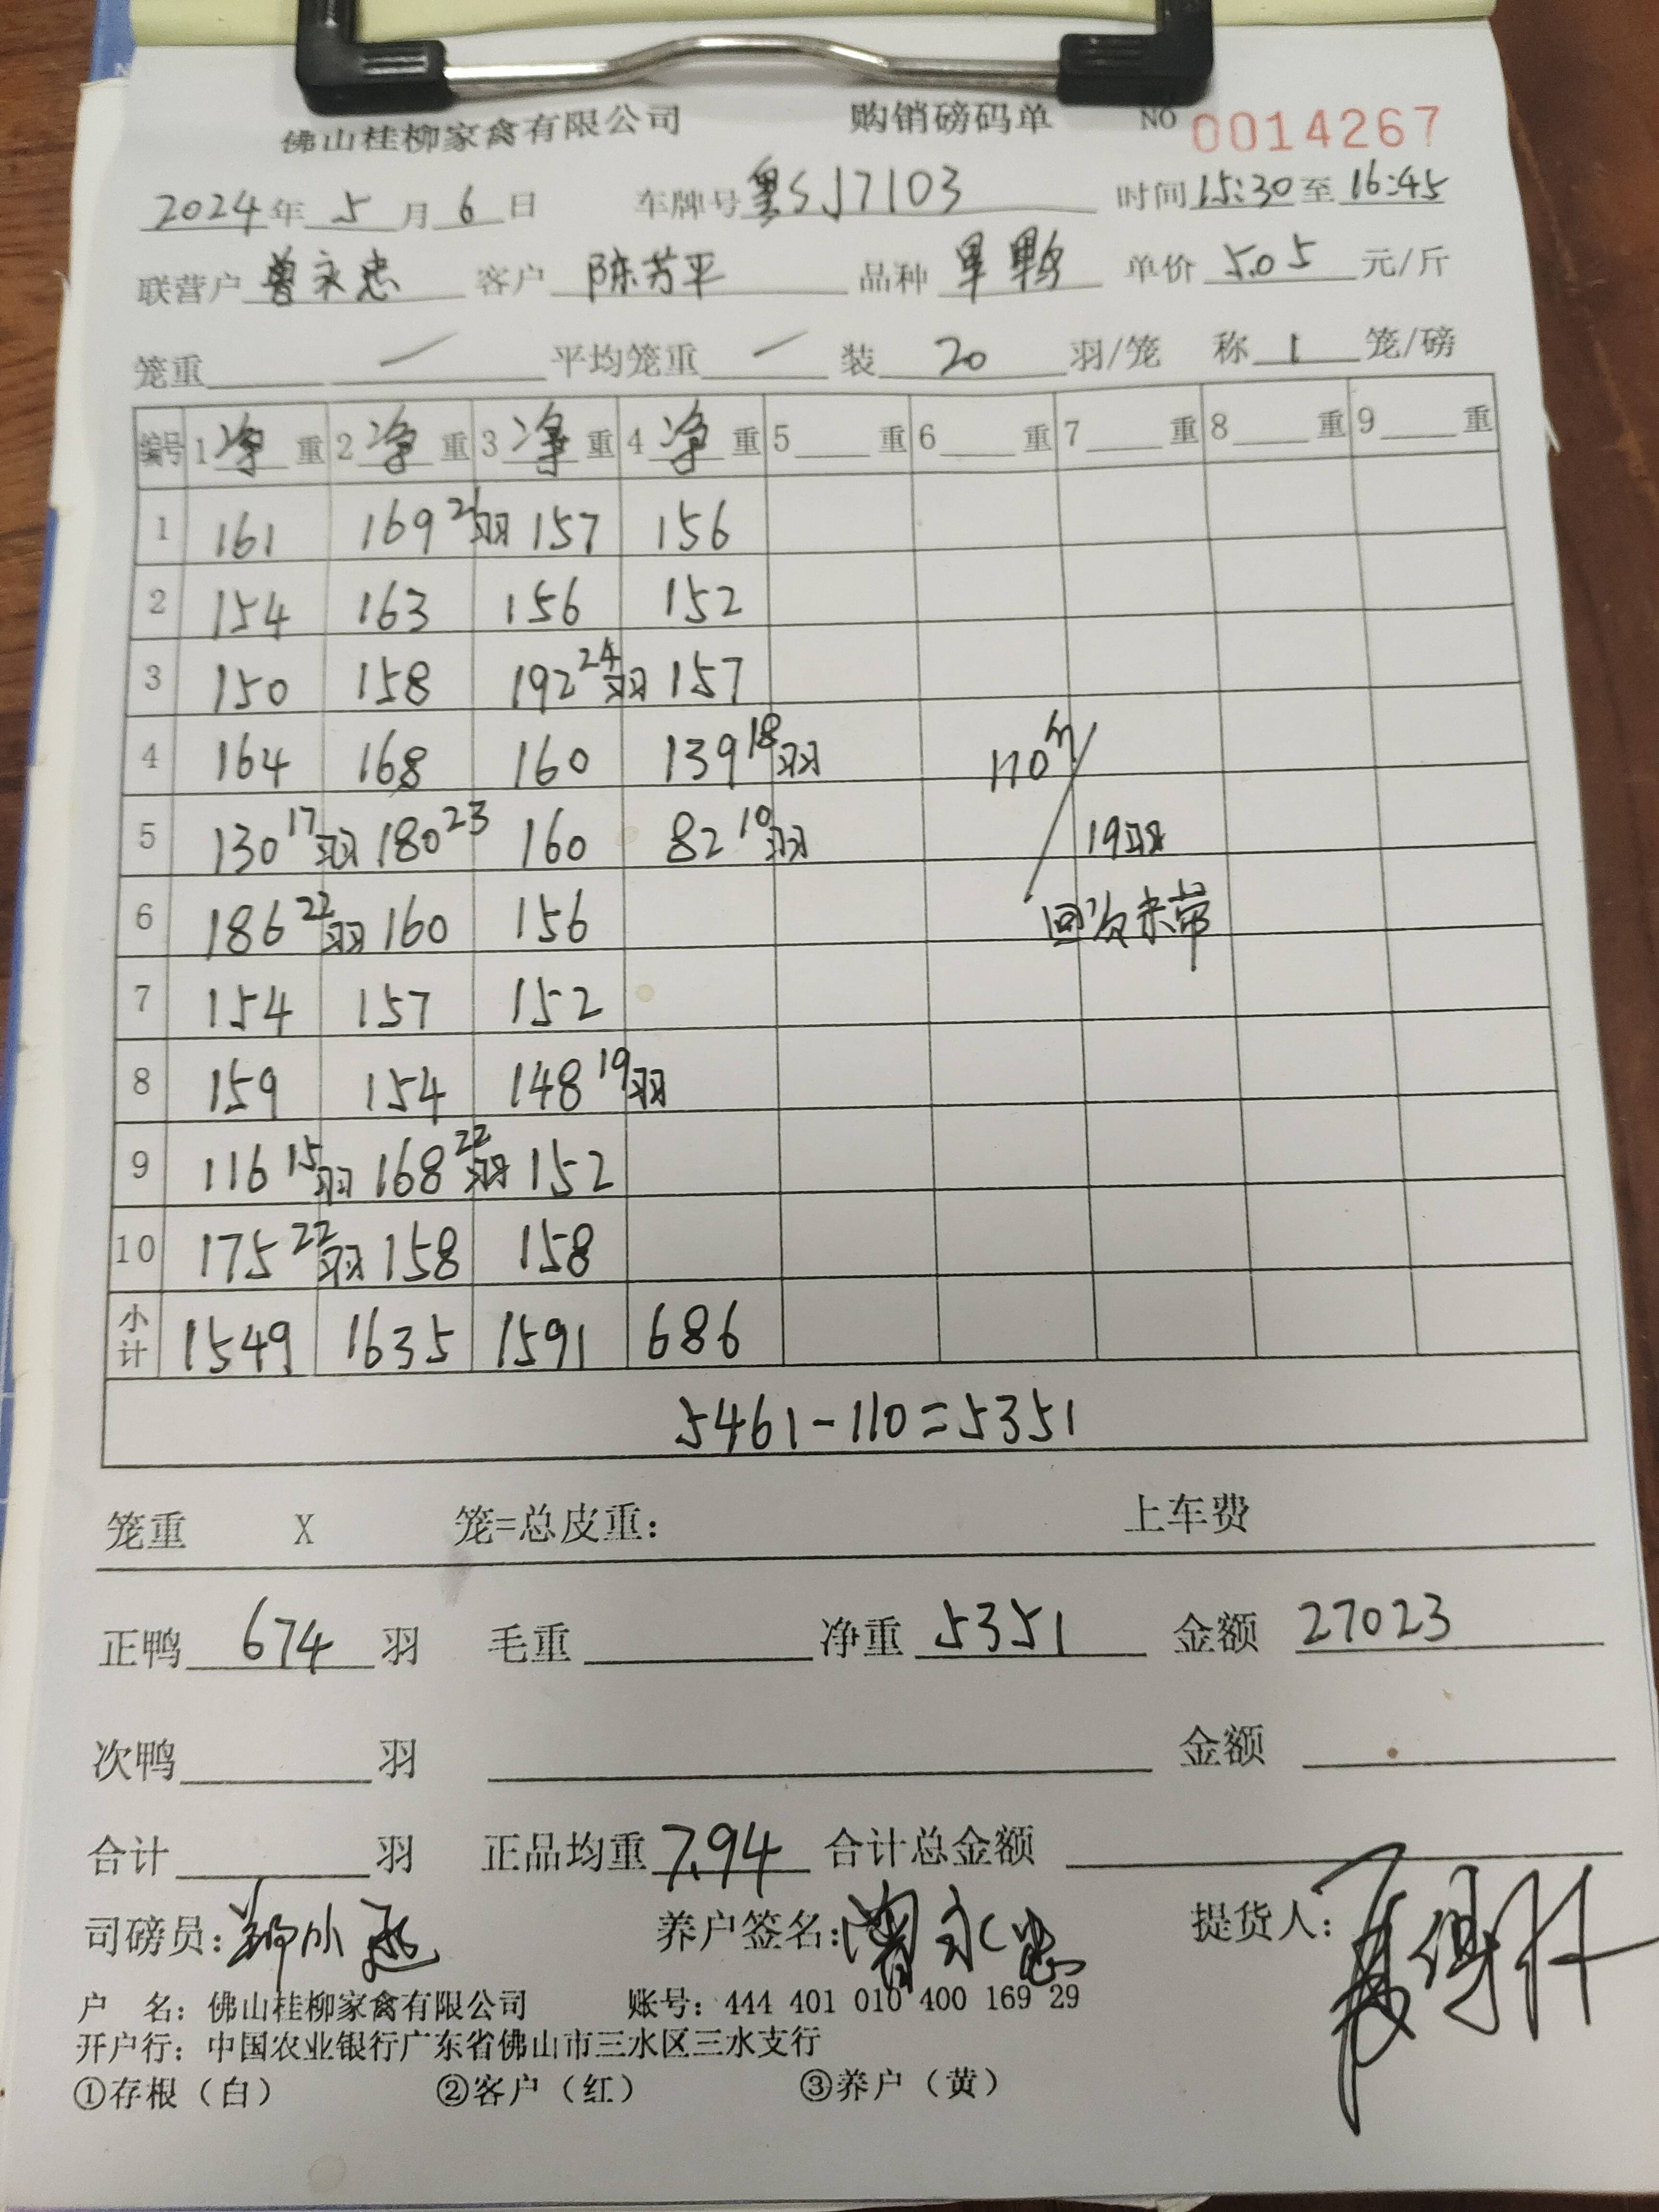 佛山桂柳家禽有限公司 购销磅码单 NO 0014267
2024年 5 月 6 日 车牌号 SJ7103 时间 15:30 至 16:45
联营户 曾永忠 客户 陈芳平 品种 单价 5.05 元/斤
笼重 / 平均笼重 / 装 20 羽/笼 称 1 笼/磅
编号 1 净 重 2 净 重 3 净 重 4 净 重 5 重 6 重 7 重 8 重 9 重
1 161 169 21羽 157 156
2 154 163 156 152
3 150 158 192 24羽 157
4 164 168 160 139 18羽 110斤
5 130 17羽 180 23 160 82 10羽 19羽
6 186 22羽 160 156
7 154 157 152
8 159 154 148 19羽
9 116 15羽 168 22羽 152
10 175 22羽 158 158
小计 1549 1635 1591 686
5461-110=5351
笼重 X 笼=总皮重: 上车费
正鸭 674 羽 毛重 净重 5351 金额 27023
次鸭 羽 金额
合计 羽 正品均重 7.94 合计总金额
司磅员: 养户签名: 曾永忠 提货人:
户 名: 佛山桂柳家禽有限公司 账号: 444 401 010 400 169 29
开户行: 中国农业银行广东省佛山市三水区三水支行
①存根（白） ②客户（红） ③养户（黄）